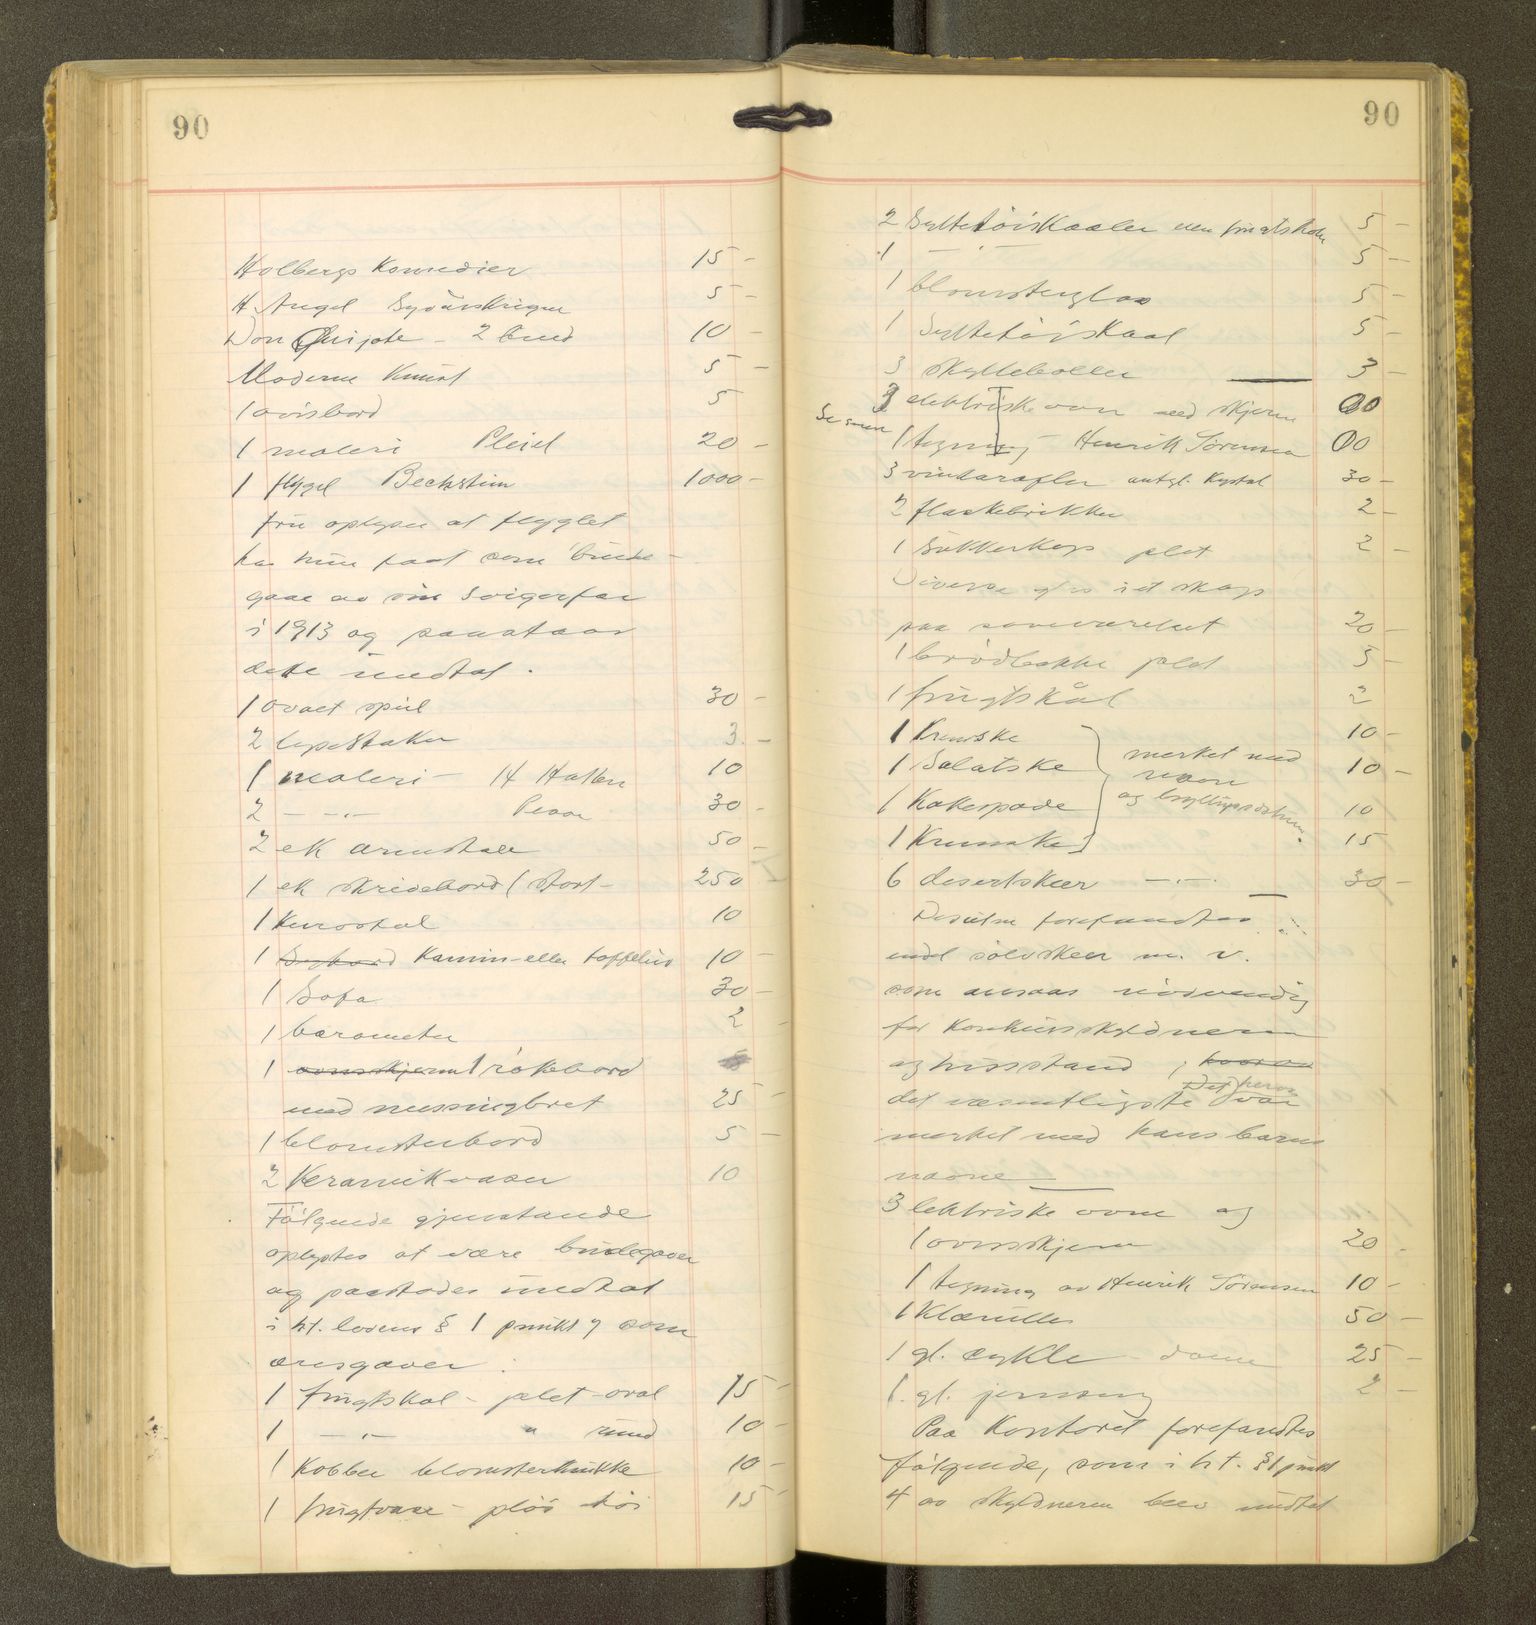 90
Holbergs Komedier 15 -
H. Angel Sydöverskrigen 5 -
Don Quijote - 2 bind 10 -
Moderne Kunst 5 -
1 avisbord 5
1 maleri Pleiel 20 -
1 flygel Bechstein 1000 -
fru oplyser at flyglet
har hun faat som brude-
gave av sin Svigerfar
i 1913 og paastaar
dette undtat.
1 ovalt speil 30 -
2 lysestaker 3. -
1 maleri - H Hakken 10
2 - " - 30 -
2 ek armstole 50 -
1 ek skrivebord (stort - 250
1 kurvstol 10
1 Sybord Kamin- eller taffelur 10 -
1 Sofa 30 -
1 barometer 2 -
1 ovnsskjerm 1 rökebord
med messingbret 25 -
1 blomsterbord 5 -
2 Keramikvaser 10
Fölgende gjenstande
oplystes at være brudegaver
og paastodes undtat
i h.t. lovens § 1 punkt 7 som
æresgaver.
1 frugtskal - plet - oval 15 -
1 - " - " rund 10 -
1 Kobber blomsterkrukke 10 -
1 frugtvase - plöi töi 15 -
90
2 Syltetöiskaaler 5 -
1 - " - 5 -
1 blomsterglas 5 -
1 Syltetöiskaal 5 -
3 skylleboller 3 -
3 elektriske ovn med skjerm 00
1 tegning - Henrik Sørensen 00
3 vinkarafler antgl. Krystal 30 -
2 flaskebrikker 2 -
1 Sukkerkop plet 2 -
Diverse glas i et skap
paa soveværelset 20 -
1 brödbakke plet 5 -
1 frugtskål 2
1 Kremske 10 -
1 Salatske 10 -
1 Kakespade 10
1 Kremske 15
merket med
navn
og bryllupsdatum.
6 desertskeer - " - 30 -
Desuten forefandtes
endel sölvskeer m. v.
som ansaas nödvendig
for Konkursskyldneren
og husstand,
det væsentligste var
merket med hans barns
navne
3 elektriske ovne og
1 ovnsskjerm 20 -
1 tegning av Henrik Sørensen 10 -
1 Klærulle 50 -
1 gl. cykle - dame 25 -
1. gl. 2 -
Paa Kontoret forefandtes
fölgende, som i h.t. § 1 punkt
4 av skyldneren blev undtat